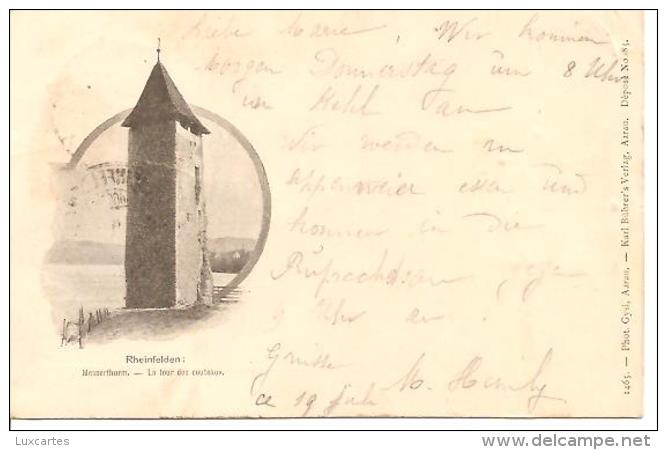 Liebe Marie, Wir kommen
Morgen Donnerstag um 8 Uhr
in Kehl an
Wir werden in
Appenweier essen und
kommen in die
9 Uhr an.
Grüsse
ce 19 Juli M.
Rheinfelden:
Messerthurm. — La tour des couteaux.
1465. — Phot. Gysi, Aarau. — Karl Bührer's Verlag, Aarau. Déposé No. 85.
Luxcartes
www.delcampe.net